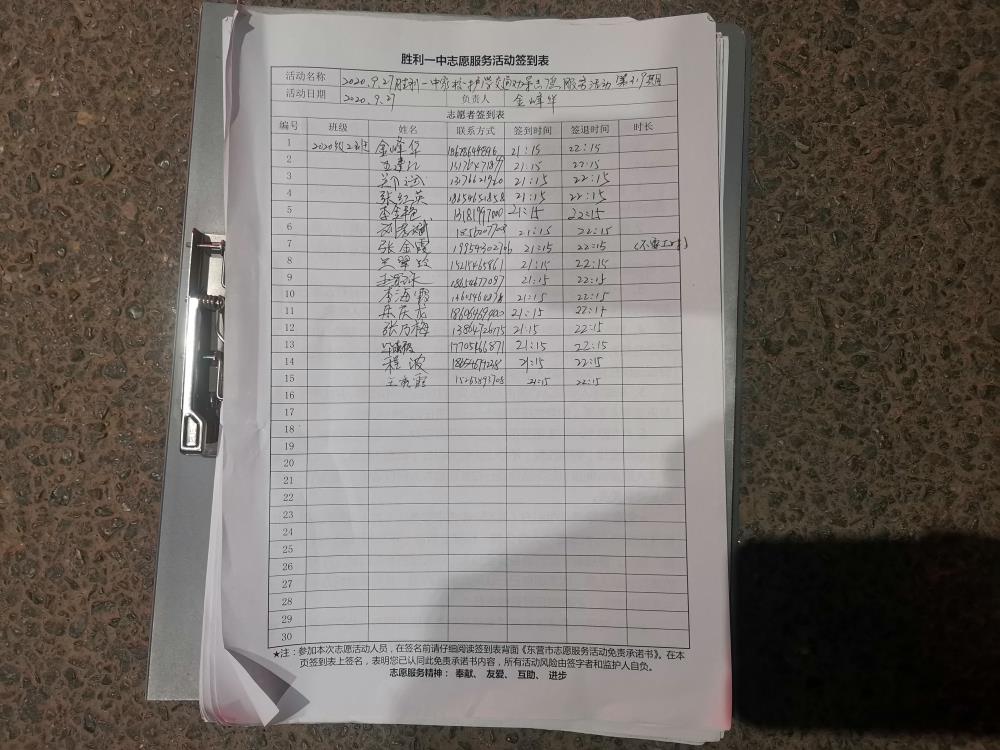 胜利一中志愿服务活动签到表
活动名称 2020.9.27胜利一中家校护学交通劝导志愿服务活动第 期
活动日期 2020.9.27 负责人 金峰华
志愿者签到表
编号 班级 姓名 联系方式 签到时间 签退时间 时长
1 2020级2班 金峰华 21:15 22:15
2 21:15 22:15
3 21:15 22:15
4 张红英 18654651858 21:15 22:15
5 李金艳 13181997000 21:15 22:15
6 21:15 22:15
7 张金霞 19954302706 21:15 22:15
8 15215465861 21:15 22:15
9 18654677097 21:15 22:15
10 李海霞 21:15 22:15
11 21:15 22:15
12 张乃梅 21:15 22:15
13 17705466871 21:15 22:15
14 程波 21:15 22:15
15 21:15 22:15
16
17
18
19
20
21
22
23
24
25
26
27
28
29
30
★注：参加本次志愿活动人员，在签名前请仔细阅读签到表背面《东营市志愿服务活动免责承诺书》。在本
页签到表上签名，表明您已认同此免责承诺书内容，所有活动风险由签字者和监护人自负。
志愿服务精神： 奉献、 友爱、 互助、 进步